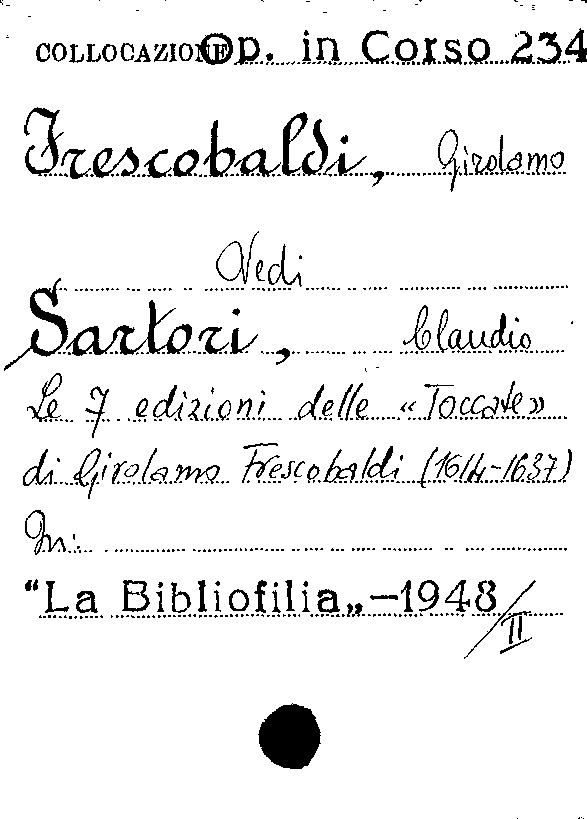 COLLOCAZIONE Op. in Corso 234
Frescobaldi, Girolamo
Vedi
Sartori, Claudio
Le 7 edizioni delle «Toccate»
di Girolamo Frescobaldi (1614-1637)
In:
“La Bibliofilia„ - 1948/II